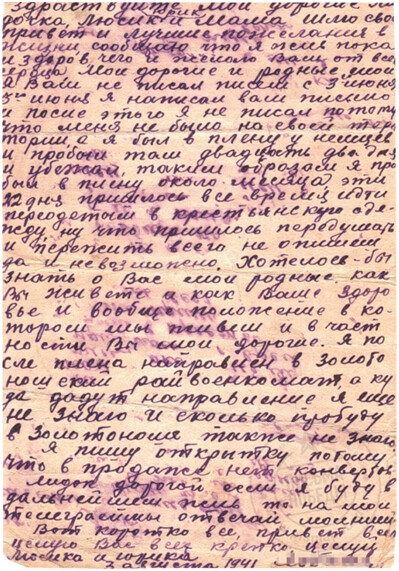 Здравствуйте мои дорогие
Люсик и мама шлю свой
привет и лучшие пожелания в
жизни, сообщаю что я жив пока
и здоров, чего и желаю Вам от все
сердца. Мои дорогие и родные мои
я Вам не писал писем с 3 июня
июня я написал вам письмо
и после этого я не писал потому
что меня не было на своей тер
тории, а я был в плену у немцев
и пробыл там двадцать два дня
и убежал, таким образом я про
был в плену около месяца, эти
22 дня пришлось все время идти
переодетым в крестьянскую оде
жду ну что пришлось передумать
и пережить всего не опишеш
да и невозможно. Хотелось-бы
знать о Вас мои родные как
Вы живете и как Ваше здоро
вье и вообще положение в ко
тором мы живем и в част
ности Вы мои дорогие. Я по
сле плена направлен в Золото
ношский райвоенкомат, а ку
да дадут направление я еще
не знаю и сколько пробуду
в Золотоноше также не знаю
Я пишу открытку потому
что в продаже нет конвертов
дорогой если я буду в
дальнейшем то на мои
телеграммы отвечай
Вот коротко все, привет всем
целую Вас всех крепко целую
августа 1941